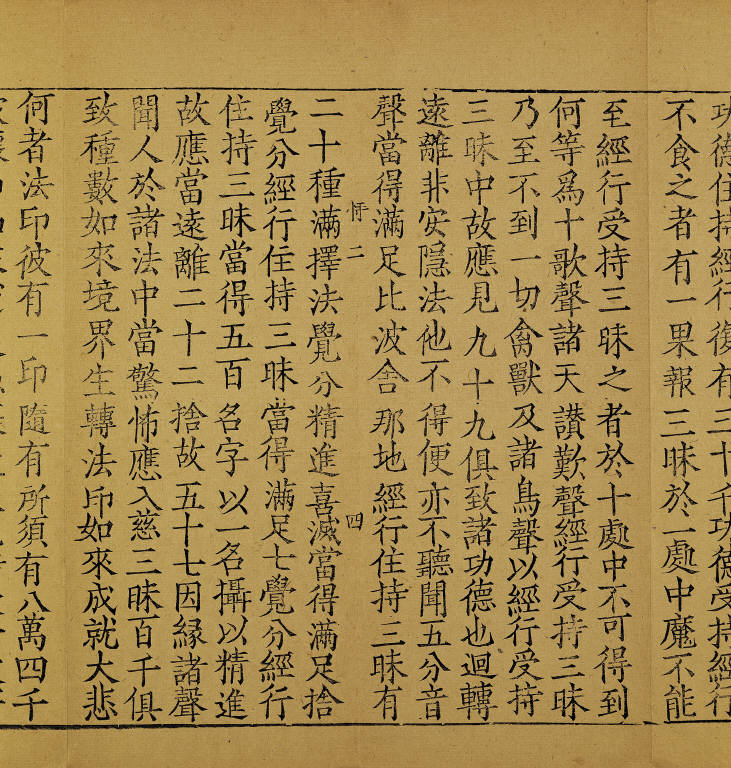 功德住持經行復有三十千功德受持經行
不食之者有一果報三昧於一處中魔不能
至經行受持三昧之者於十處中不可得到
何等爲十歌聲諸天讃歎聲經行受持三昧
乃至不到一切禽獸及諸鳥聲以經行受持
三昧中故應見九十九俱致諸功德也迴轉
遠離非安隱法他不得便亦不聽聞五分音
聲當得滿足比波舍那地經行住持三昧有
二 四
二十種滿擇决覺分精進喜滅當得滿足捨
覺分經行住持三昧當得滿足七覺分經行
住持三昧當得五百名字以一名攝以精進
故應當遠離二十二捨故五十七因緣諸聲
聞人於諸法中當驚怖應入慈三昧百千俱
致種數如來境界生轉法印如來成就大悲
何者法印彼有一印隨有所須有八萬四千